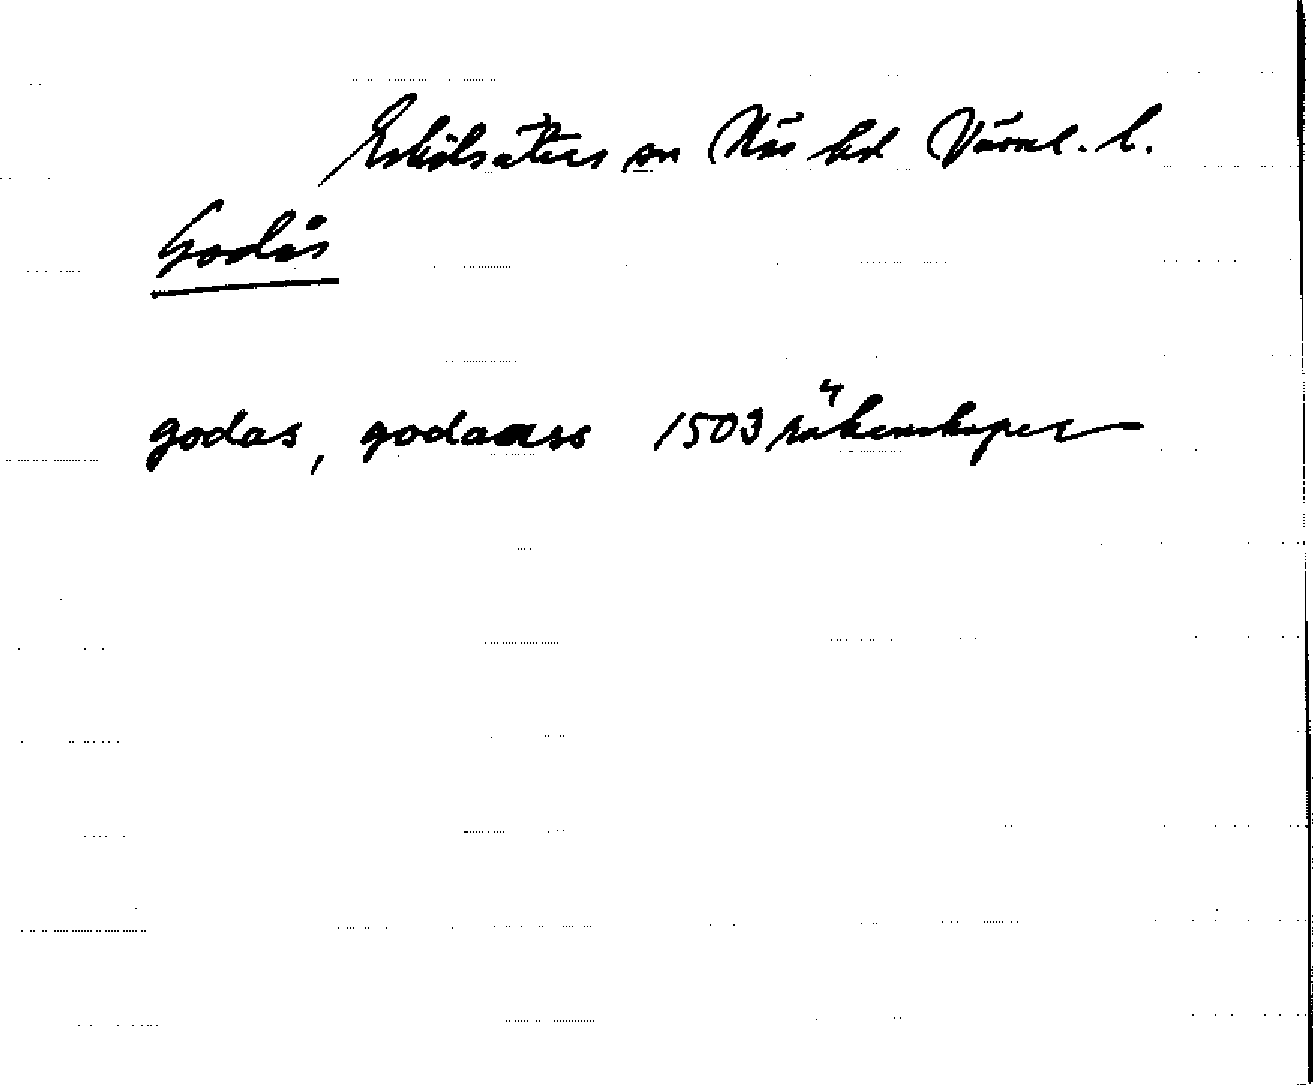 Eskilsäters sn Näs hd Värml. l.
Godås
godas, godaass 1503 räkenskaper